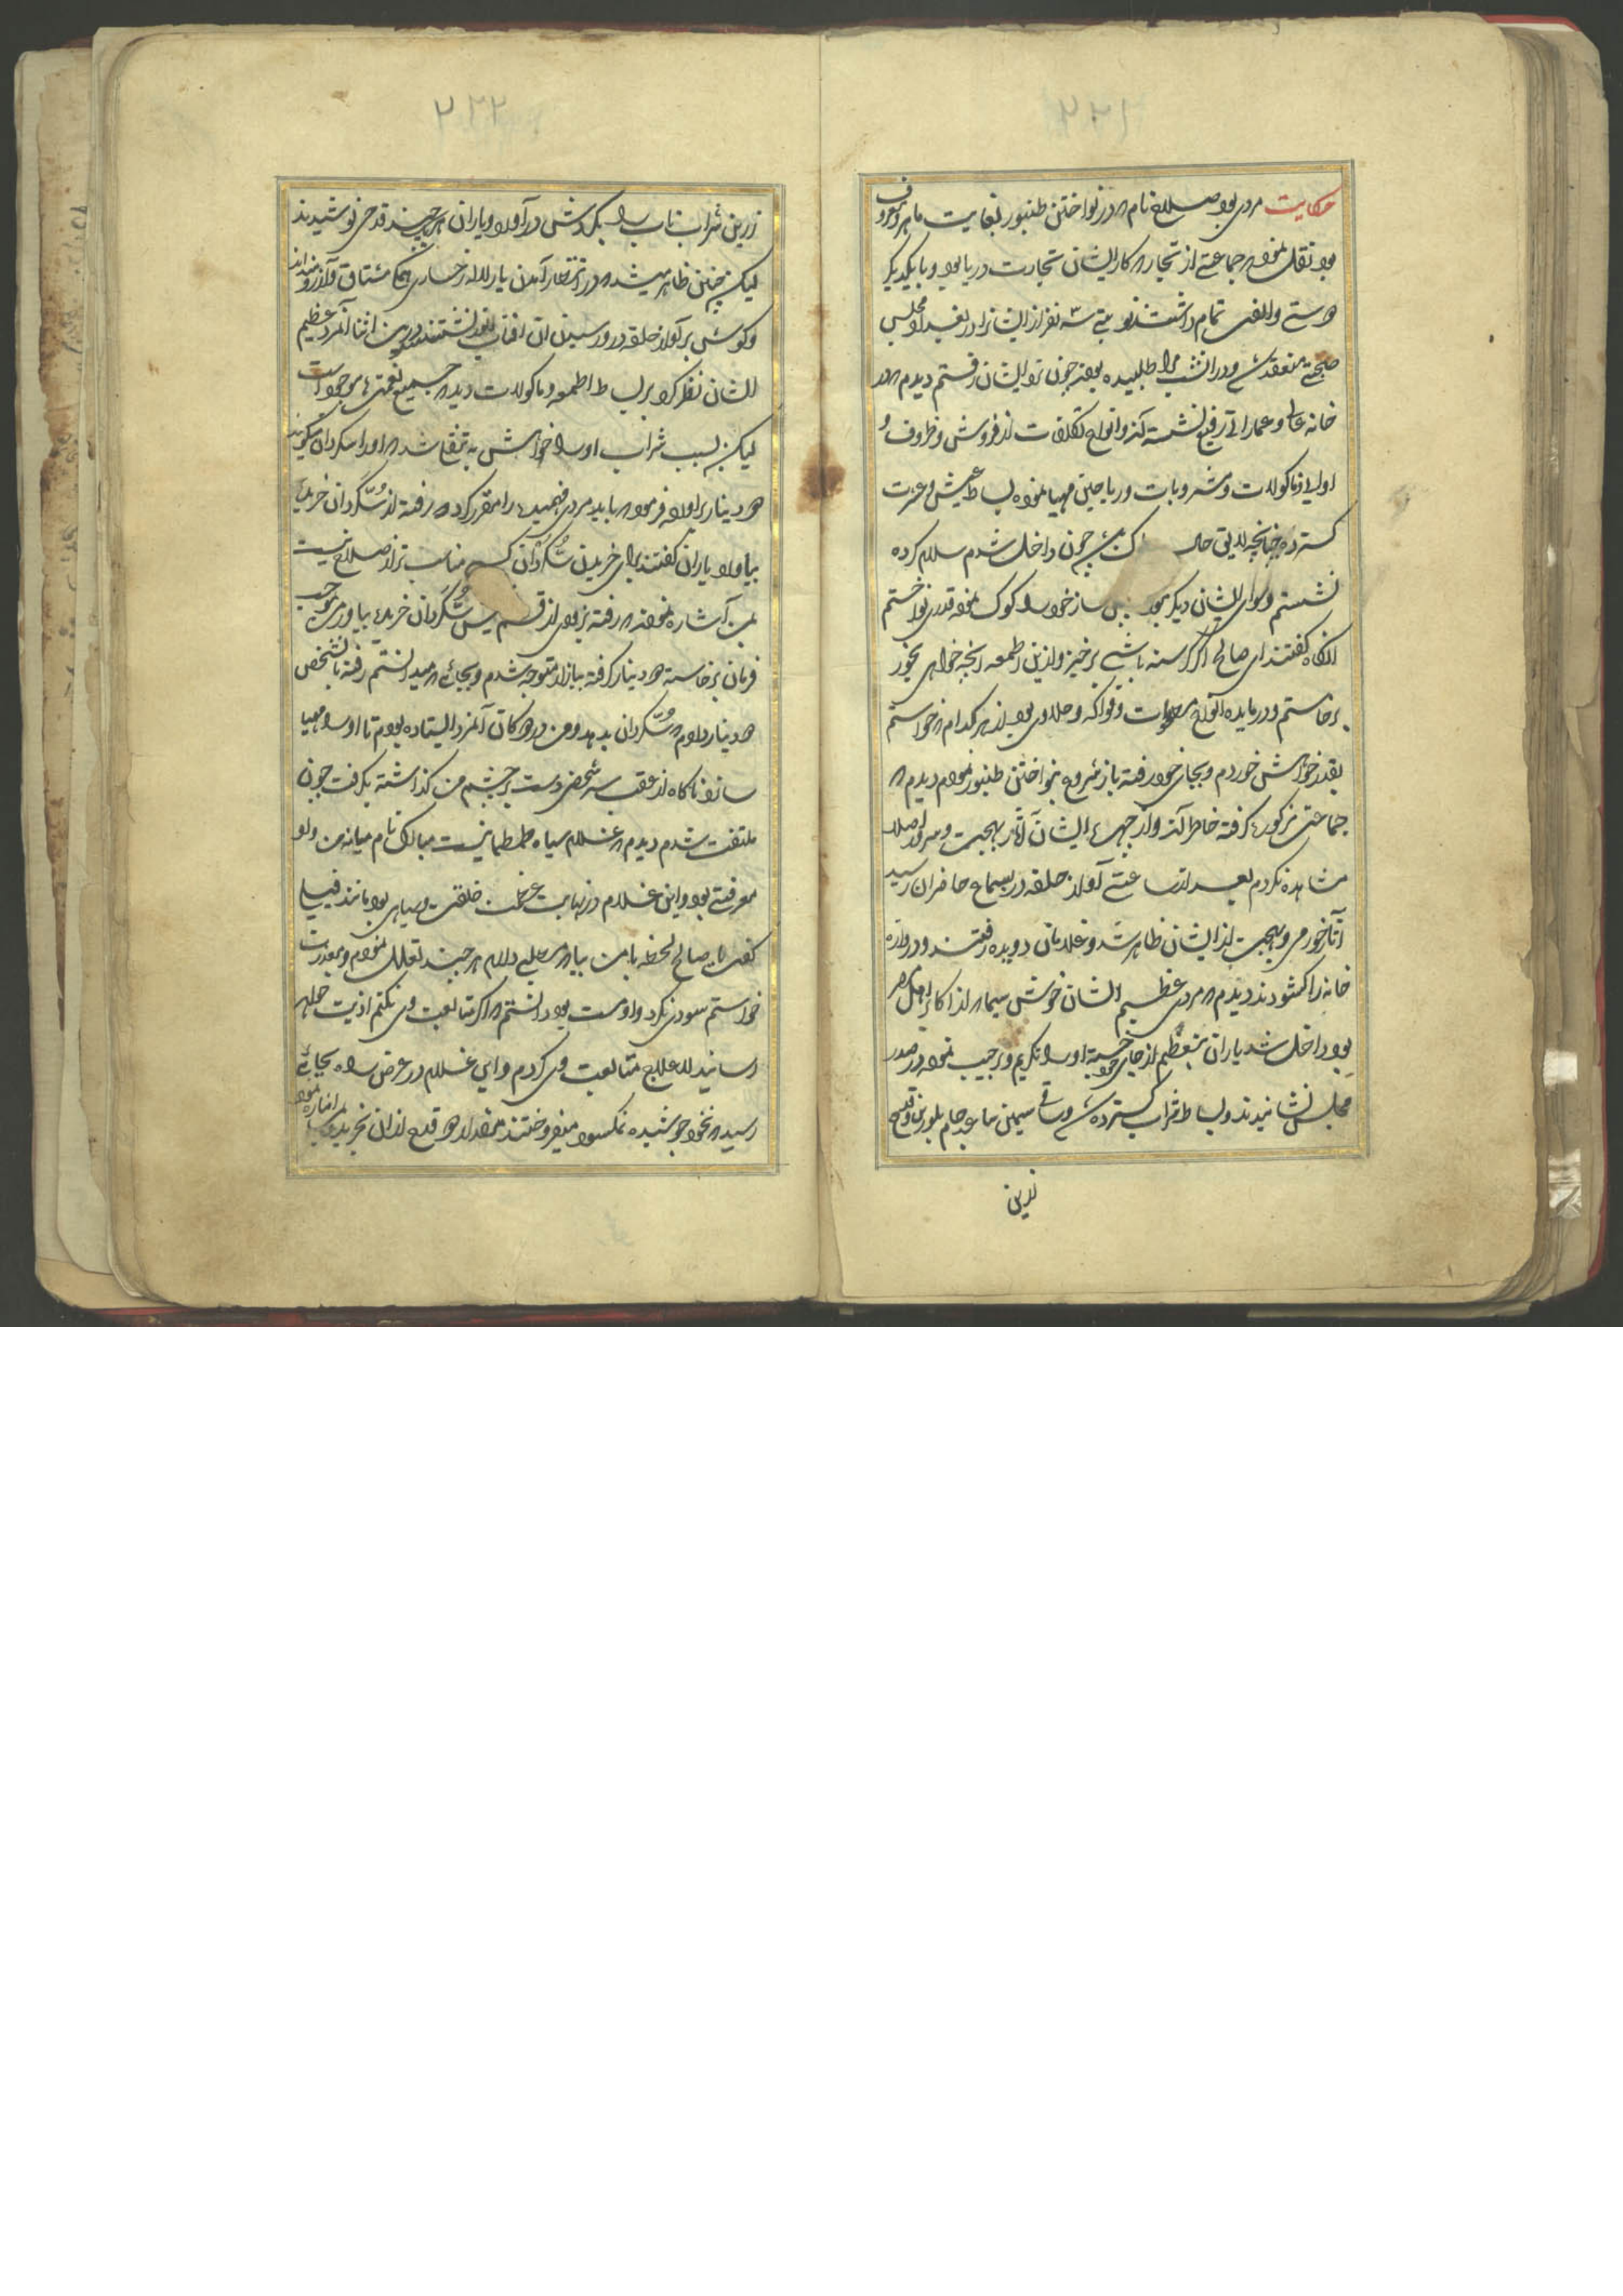 ۲۲۱
حکایت مردی بود صالح نام که در نواختن طنبور بغایت ماهر و معروف
بود نقل نموده که جماعتی از تجار که کار ایشان تجارت دریا بود و با یکدیگر
دوستی والفتی تمام داشتند نوبتی سه نفر از ایشان را در بغداد مجلس
صحبتی منعقد شده و در انشب مرا طلبیده بودند چون نزد ایشان رفتم دیدم که در
خانه عالی و عماراتی رفیع نشسته اند وانواع تکلفات از فروش و ظروف و
اوانی و ماکولات و مشروبات و ریاحین مهیا نموده بساط عیش وعشرت
کسترده چنانچه لایق حال چون داخل شدم سلام کرده
نشستم و سوای ایشان دیگر نبود پس ساز خود را کوک نموده قدری نواختم
انکاه کفتند ای صالح اکر کرسنه باشی برخیز وازین اطعمه انچه خواهی بخور
برخاستم ودر مایده انواع حلویات و فواکه و حلاوی بود از هر کدام که خواستم
بقدر خواهش خوردم و بجای خود رفته باز شروع بنواختن طنبور نمودم دیدم که
جماعتی مذکوره کرفته خاطر اند واز جبهه ایشان آثار بهجت وسرور اصلا
مشاهده نکردم بعد از ساعتی آواز حلقه در بسماع حاضران رسید
آثار خورمی و بهجت از ایشان ظاهر شد و غلامان دویده رفتند ودروازه
خانه را کشودند دیدم که مردی عظیم الشان خوش سیما که از اکابر اهل مصر
بود داخل شد یاران بتعظیم از جای جسته اورا تکریم و ترحیب نموده در صدر
مجلس نشانیدند و بساط شراب کسترده شده وساقی سیمین ساعد جام بلورین وقدح
زرین
۲۲۲
زرین شراب ناب را بکردش در آورد و یاران هر چند قدحی نوشیدند
لیکن چنین ظاهر میشد که در انتظار آمدن یار لاله رخساری همکی مشتاق وآرزومنداند
وکوش بر آواز حلقه در ورسیدن ان افتاب نشستند درین اثنا آنمرد عظیم
الشان نظر کرد بر بساط اطعمه و ماکولات دید که جمیع نعمتها موجود است
لیکن بسبب شراب اورا خواهش به شد که اورا سکردان میکویند
دو دینار براورده فرمود که باید مردی فهمیده را مقرر کرد که رفته از سکردان خریده
بیاورد یاران کفتند برای خریدن سکردان کسی مناسب تر از صالح نیست
بمن آشاره نمودند که رفته بزودی از قسم سکردان خریده بیاور من بموجب
فرمان برخاسته دو دینار کرفته ببازار متوجه شدم وبجائی که میدانستم رفته بانشخص
دو دینار دادم که سکردان بدهد ومن در دوکان آنمرد ایستاده بودم تا اورا مهیا
سازد ناکاه از عقب سر شخصی دست بر چشم من کذاشته بکرفت چون
ملتفت شدم دیدم که غلام سیاه طمطمانیست مبارک نام میانه من واو
معرفتی بود واین غلام در نهایت عظمت خلقت وسیاهی بود مانند فیل
کفت ای صالح لحظه با من بیا که مطلبی دارم هر چند تعلل نمودم و معذرت
خواستم سودی نکرد واو مست بود دانستم که اکر متابعت وی نکنم اذیت خواهد
رسانید لاعلاج متابعت وی کردم و این غلام در عرض راه بجائی
رسید که نخود جوشیده نمکسود میفروختند مقدار دو قدح ازان خرید